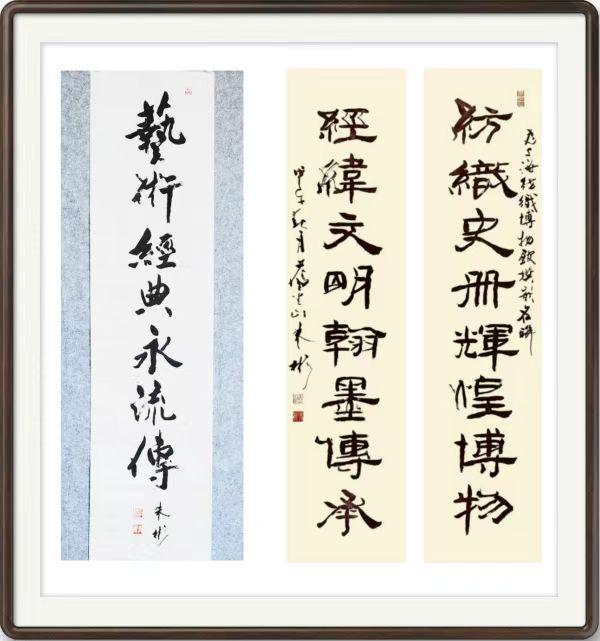 為上海紡織博物館撰嵌名聯
紡織史冊輝煌博物
經緯文明翰墨傳承
甲午秋月 朱彬
藝術經典永流傳
朱彬